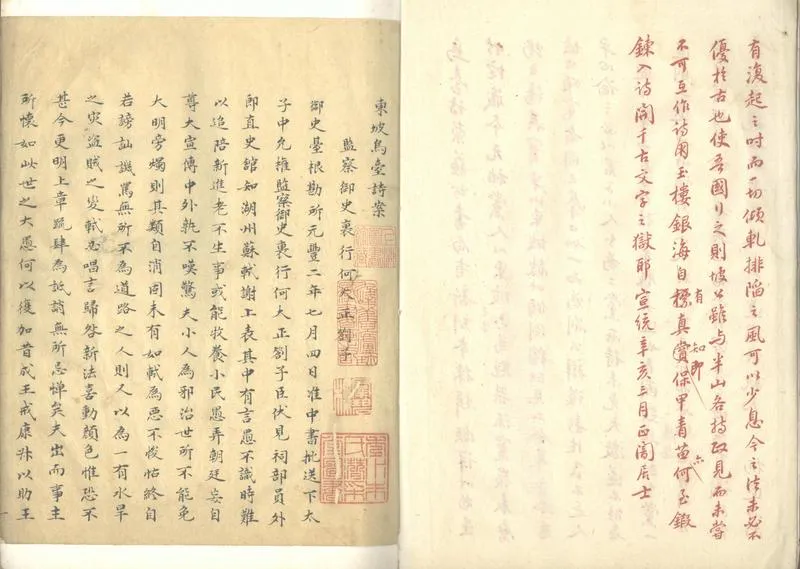 有復起之時而一切傾軋排陷之風可以少息今之法未必不
優於古也使吾國之則坡公雖与半山各持政見而未嘗
不可互作詩用玉樓銀海自標真賞保甲青苗何至鍛
有
知即
鍊入詩開千古文字之獄耶宣統辛亥三月正闇居士
東坡烏臺詩案
監察御史裏行何大正劄子
御史臺根勘所元豐二年七月四日准中書批送下太
子中允權監察御史裏行何大正劄子臣伏見祠部員外
郎直史館知湖州蘇軾謝上表其中有言愚不識時難
以追陪新進老不生事或能牧養小民愚弄朝廷妄自
尊大宣傳中外孰不嘆驚夫小人為邪治世所不能免
大明旁燭則其類自消固未有如軾為惡不悛怙終自
若謗訕譏罵無所不為道路之人則又以為一有水旱
之災盜賊之變軾必唱言歸咎新法喜動顏色惟恐不
甚今更明上章疏肆為詆誚無所忌憚矣夫出而事主
所懷如此世之大愚何以復加昔成王戒康叔以助王